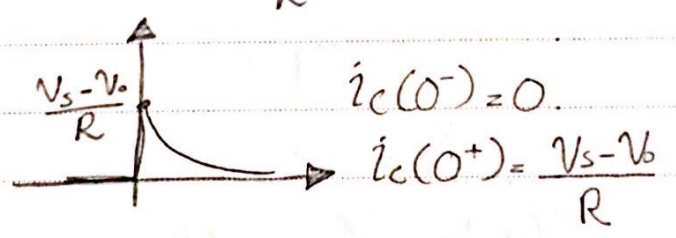 Vs-Vo
R
ic(0⁻)=0.
ic(0⁺)= Vs-Vo
R